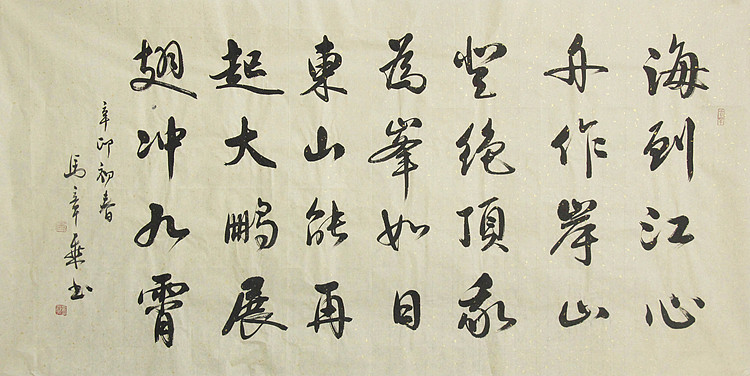 海到江心
舟作岸山
登絶頂我
為峯如日
東山能再
起大鵬展
翅冲九霄
辛卯初春
馬章乘书